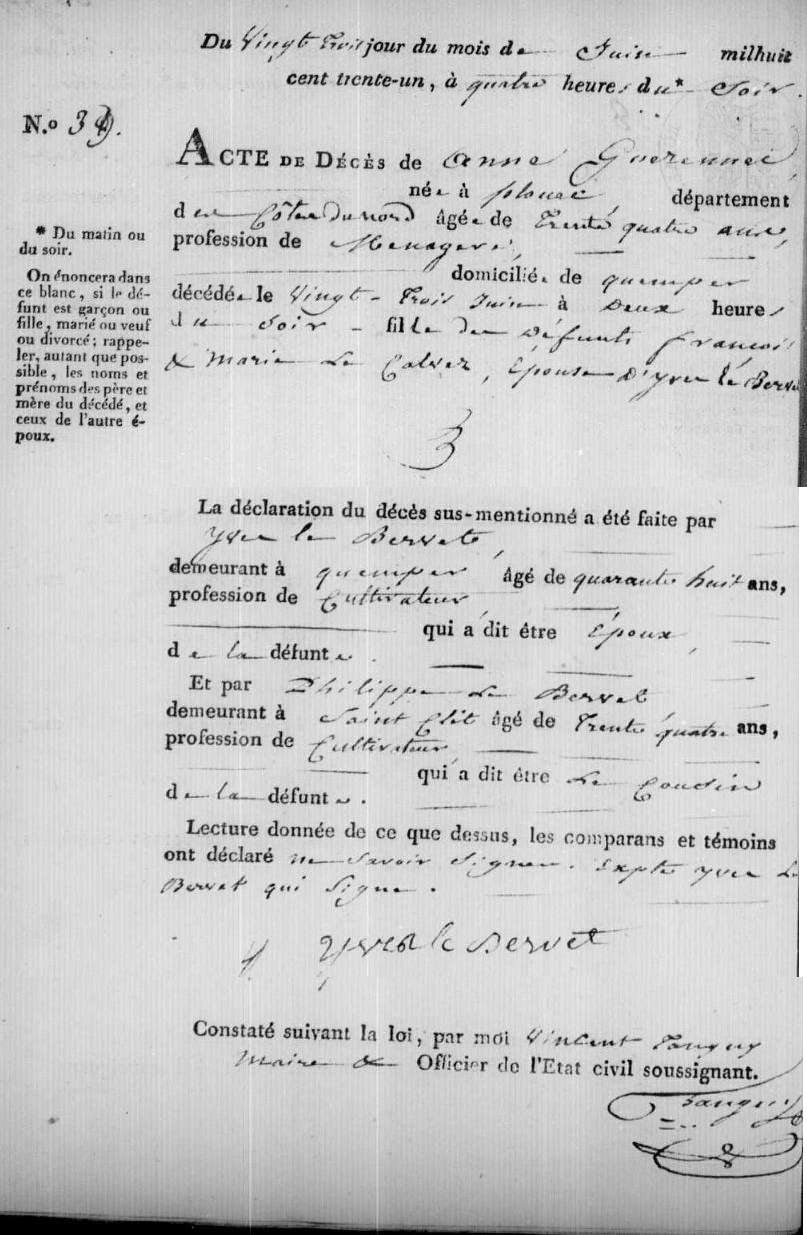 Du Vingt Trois jour du mois de Juin milhuit
cent trente-un, à quatre heures du* Soir.
N.o 39.
ACTE DE DÉCÈS de Anne Guerennec,
née à plouec, département
des Côtes du nord âgée de Trente quatre ans,
profession de Menagere,
domiciliée de quemper
décédée le Vingt-Trois Juin à Deux heures
du Soir - fille des Défunts francois
& Marie Le Calvez, Epouse D'yves le Bervet
* Du matin ou
du soir.
On énoncera dans
ce blanc, si le dé-
funt est garçon ou
fille, marié ou veuf
ou divorcé; rappe-
ler, autant que pos-
sible, les noms et
prénoms des père et
mère du décédé, et
ceux de l'autre é-
poux.
La déclaration du décès sus-mentionné a été faite par
yves le Bervet,
demeurant à quemper âgé de quarante huit ans,
profession de Cultivateur,
qui a dit être Epoux,
de la défunte.
Et par Philippe Le Bervet
demeurant à Saint Clet âgé de Trente quatre ans,
profession de Cultivateur,
qui a dit être Le Cousin
de la défunte.
Lecture donnée de ce que dessus, les comparans et témoins
ont déclaré ne Savoir Signer. Expté yves Le
Bervet qui Signe.
yves le Bervet
Constaté suivant la loi, par moi Vincent Tanguy
Maire & Officier de l'Etat civil soussignant.
Tanguy